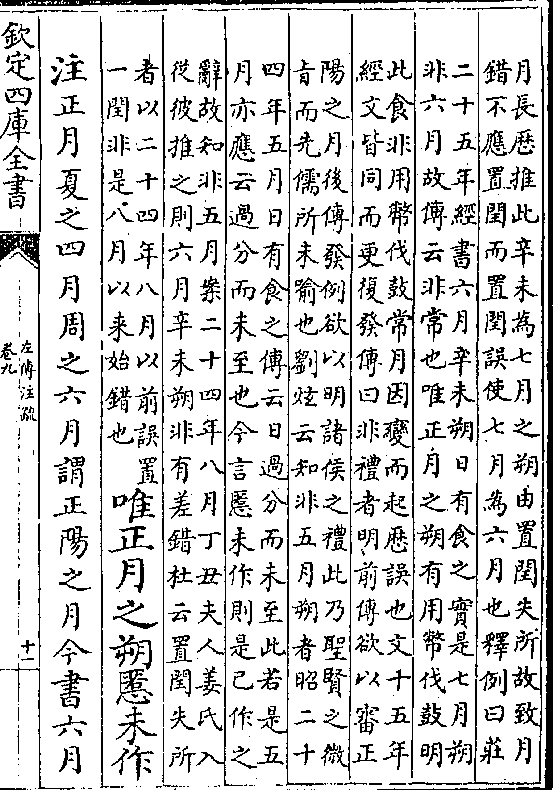 月長厯推此辛未為七月之朔由置閏失所故致月
錯不應置閏而置閏誤使七月為六月也釋例曰莊
二十五年經書六月辛未朔日有食之實是七月朔
非六月故傳云非常也唯正月之朔有用幣伐鼓明
此食非用幣伐鼓常月因變而起厯誤也文十五年
經文皆同而更復發傳曰非禮者明前傳欲以審正
陽之月後傳發例欲以明諸侯之禮此乃聖賢之微
㫖而先儒所未喻也劉炫云知非五月朔者昭二十
四年五月日有食之傳云日過分而未至此若是五
月亦應云過分而未至也今言慝未作則是已作之
辭故知非五月案二十四年八月丁丑夫人姜氏入
從彼推之則六月辛未朔非有差錯杜云置閏失所
者以二十四年八月以前誤置
一閏非是八月以来始錯也
唯正月之朔慝未作
注正月夏之四月周之六月謂正陽之月今書六月
欽定四庫全書
左傳注疏
卷九
十二